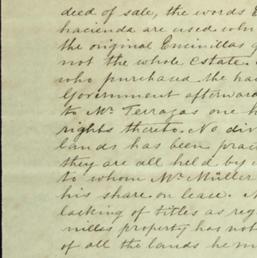 deed of sale, the words E
hacienda are used when
the original Encinillas
not the whole estate.
who purchased the ha
Government afterward
to Mr. Terrazas one h
rights thereto. No div
lands has been prac
they are all held by
to whom Mr. Müller
his share on lease.
lacking of titles as reg
nillas property has not
of all the lands he m